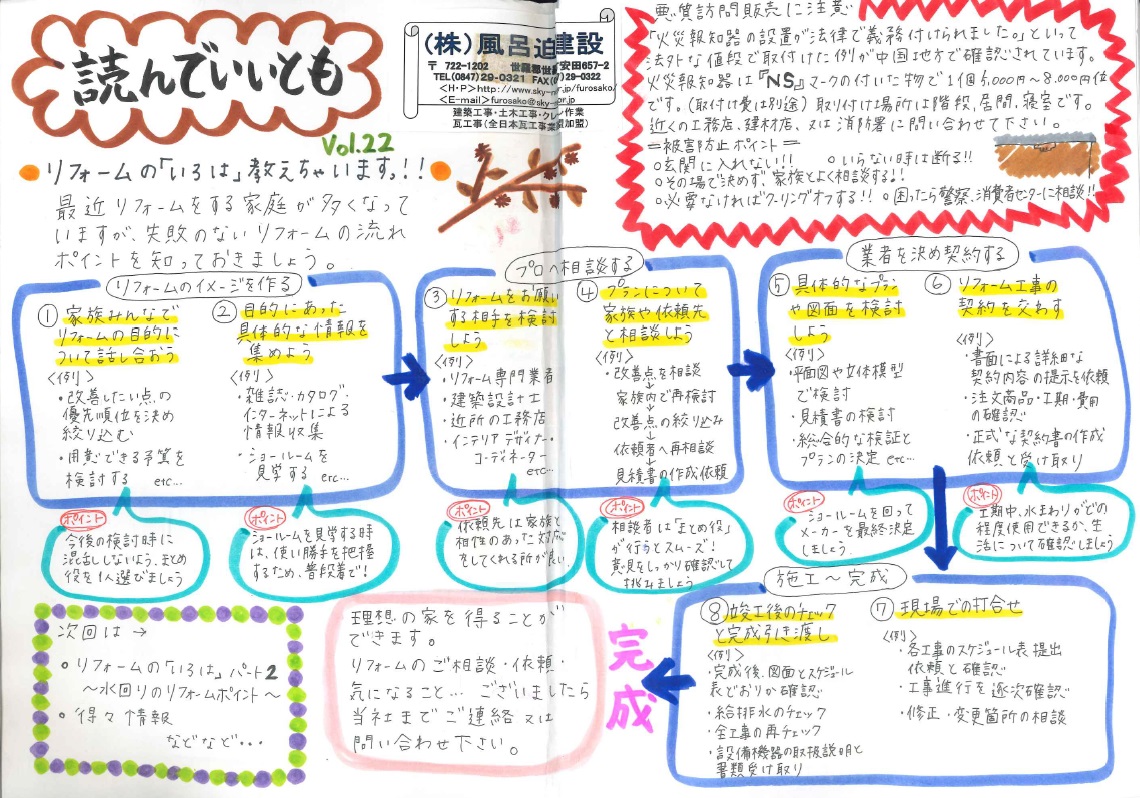 読んでいいとも
Vol.22
(株)風呂迫建設
〒 722-1202 世羅郡世羅 安田657-2
TEL(0847)29-0321 FAX 29-0322
<H・P>http://www.sky-.jp/furosako/
<E-mail>furosako@sky-.jp
建築工事・土木工事・クレーン作業
瓦工事(全日本瓦工事業 加盟)
悪質訪問販売に注意
「火災報知器の設置が法律で義務付けられました。」といって
法外な値段で取付けた例が中国地方で確認されています。
火災報知器は『NS』マークの付いた物で1個5,000円〜8,000円位
です。(取付け費は別途)取り付け場所は階段、居間、寝室です。
近くの工務店、建材店、又は消防署に問い合わせて下さい。
=被害防止ポイント=
○玄関に入れない!!! ○いらない時は断る!!
○その場で決めず、家族とよく相談する!!
○必要なければクーリングオフする!! ○困ったら警察、消費者センターに相談!!
リフォームの「いろは」教えちゃいますっ!!
最近リフォームをする家庭が多くなって
いますが、失敗のないリフォームの流れ
ポイントを知っておきましょう。
リフォームのイメージを作る
① 家族みんなで
リフォームの目的に
ついて話し合おう
<例>
・改善したい点の
優先順位を決め
絞り込む
・用意できる予算を
検討する etc…
② 目的にあった
具体的な情報を
集めよう
<例>
・雑誌・カタログ・
インターネットによる
情報収集
・ショールームを
見学する etc…
ポイント
今後の検討時に
混乱しないよう、まとめ
役を1人選びましょう
ポイント
ショールームを見学する時
は、使い勝手を把握
するため、普段着で!
プロへ相談する
③ リフォームをお願い
する相手を検討
しよう
<例>
・リフォーム専門業者
・建築設計士
・近所の工務店
・インテリアデザイナー・
コーディネーター
etc…
④ プランについて
家族や依頼先
と相談しよう
<例>
・改善点を相談
↓
家族内で再検討
↓
改善点の絞り込み
↓
依頼者へ再相談
↓
見積書の作成依頼
ポイント
依頼先は家族と
相性のあった対応
をしてくれる所が良い
ポイント
相談者は「まとめ役」
が行うとスムーズ!
意見をしっかり確認して
挑みましょう
業者を決め契約する
⑤ 具体的なプラン
や図面を検討
しよう
<例>
・平面図や立体模型
で検討
・見積書の検討
・総合的な検証と
プランの決定 etc…
⑥ リフォーム工事の
契約を交わす
<例>
・書面による詳細な
契約内容の提示を依頼
・注文商品・工期・費用
の確認
・正式な契約書の作成
依頼と受け取り
ポイント
ショールームを回って
メーカーを最終決定
しましょう
ポイント
工期中、水まわりがどの
程度使用できるか、生
活について確認しましょう
施工〜完成
⑦ 現場での打合せ
<例>
・各工事のスケジュール表提出
依頼と確認
・工事進行を逐次確認
・修正・変更箇所の相談
⑧ 竣工後のチェック
と完成引き渡し
<例>
・完成後、図面とスケジュール
表どおりか確認
・給排水のチェック
・全工事の再チェック
・設備機器の取扱説明と
書類受け取り
完成
理想の家を得ることが
できます。
リフォームのご相談・依頼・
気になること… ございましたら
当社までご連絡又は
問い合わせ下さい。
次回は→
○リフォームの「いろは」パート2
〜水回りのリフォームポイント〜
○得々情報
などなど・・・